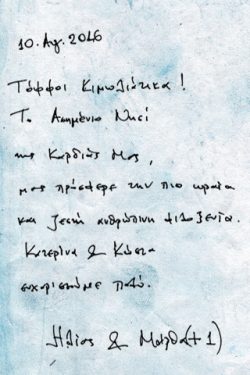 10. Αγ. 2016
Τάφροι Κιμωλιάτικα!
Το Ασημένιο Νησί
της Καρδιάς Μας,
μας πρόσφερε την πιο ωραία
και ζεστή ανθρώπινη φιλοξενία.
Κατερίνα & Κώστα
ευχαριστούμε πολύ.
Ηλίας & Μάλθα (+1)